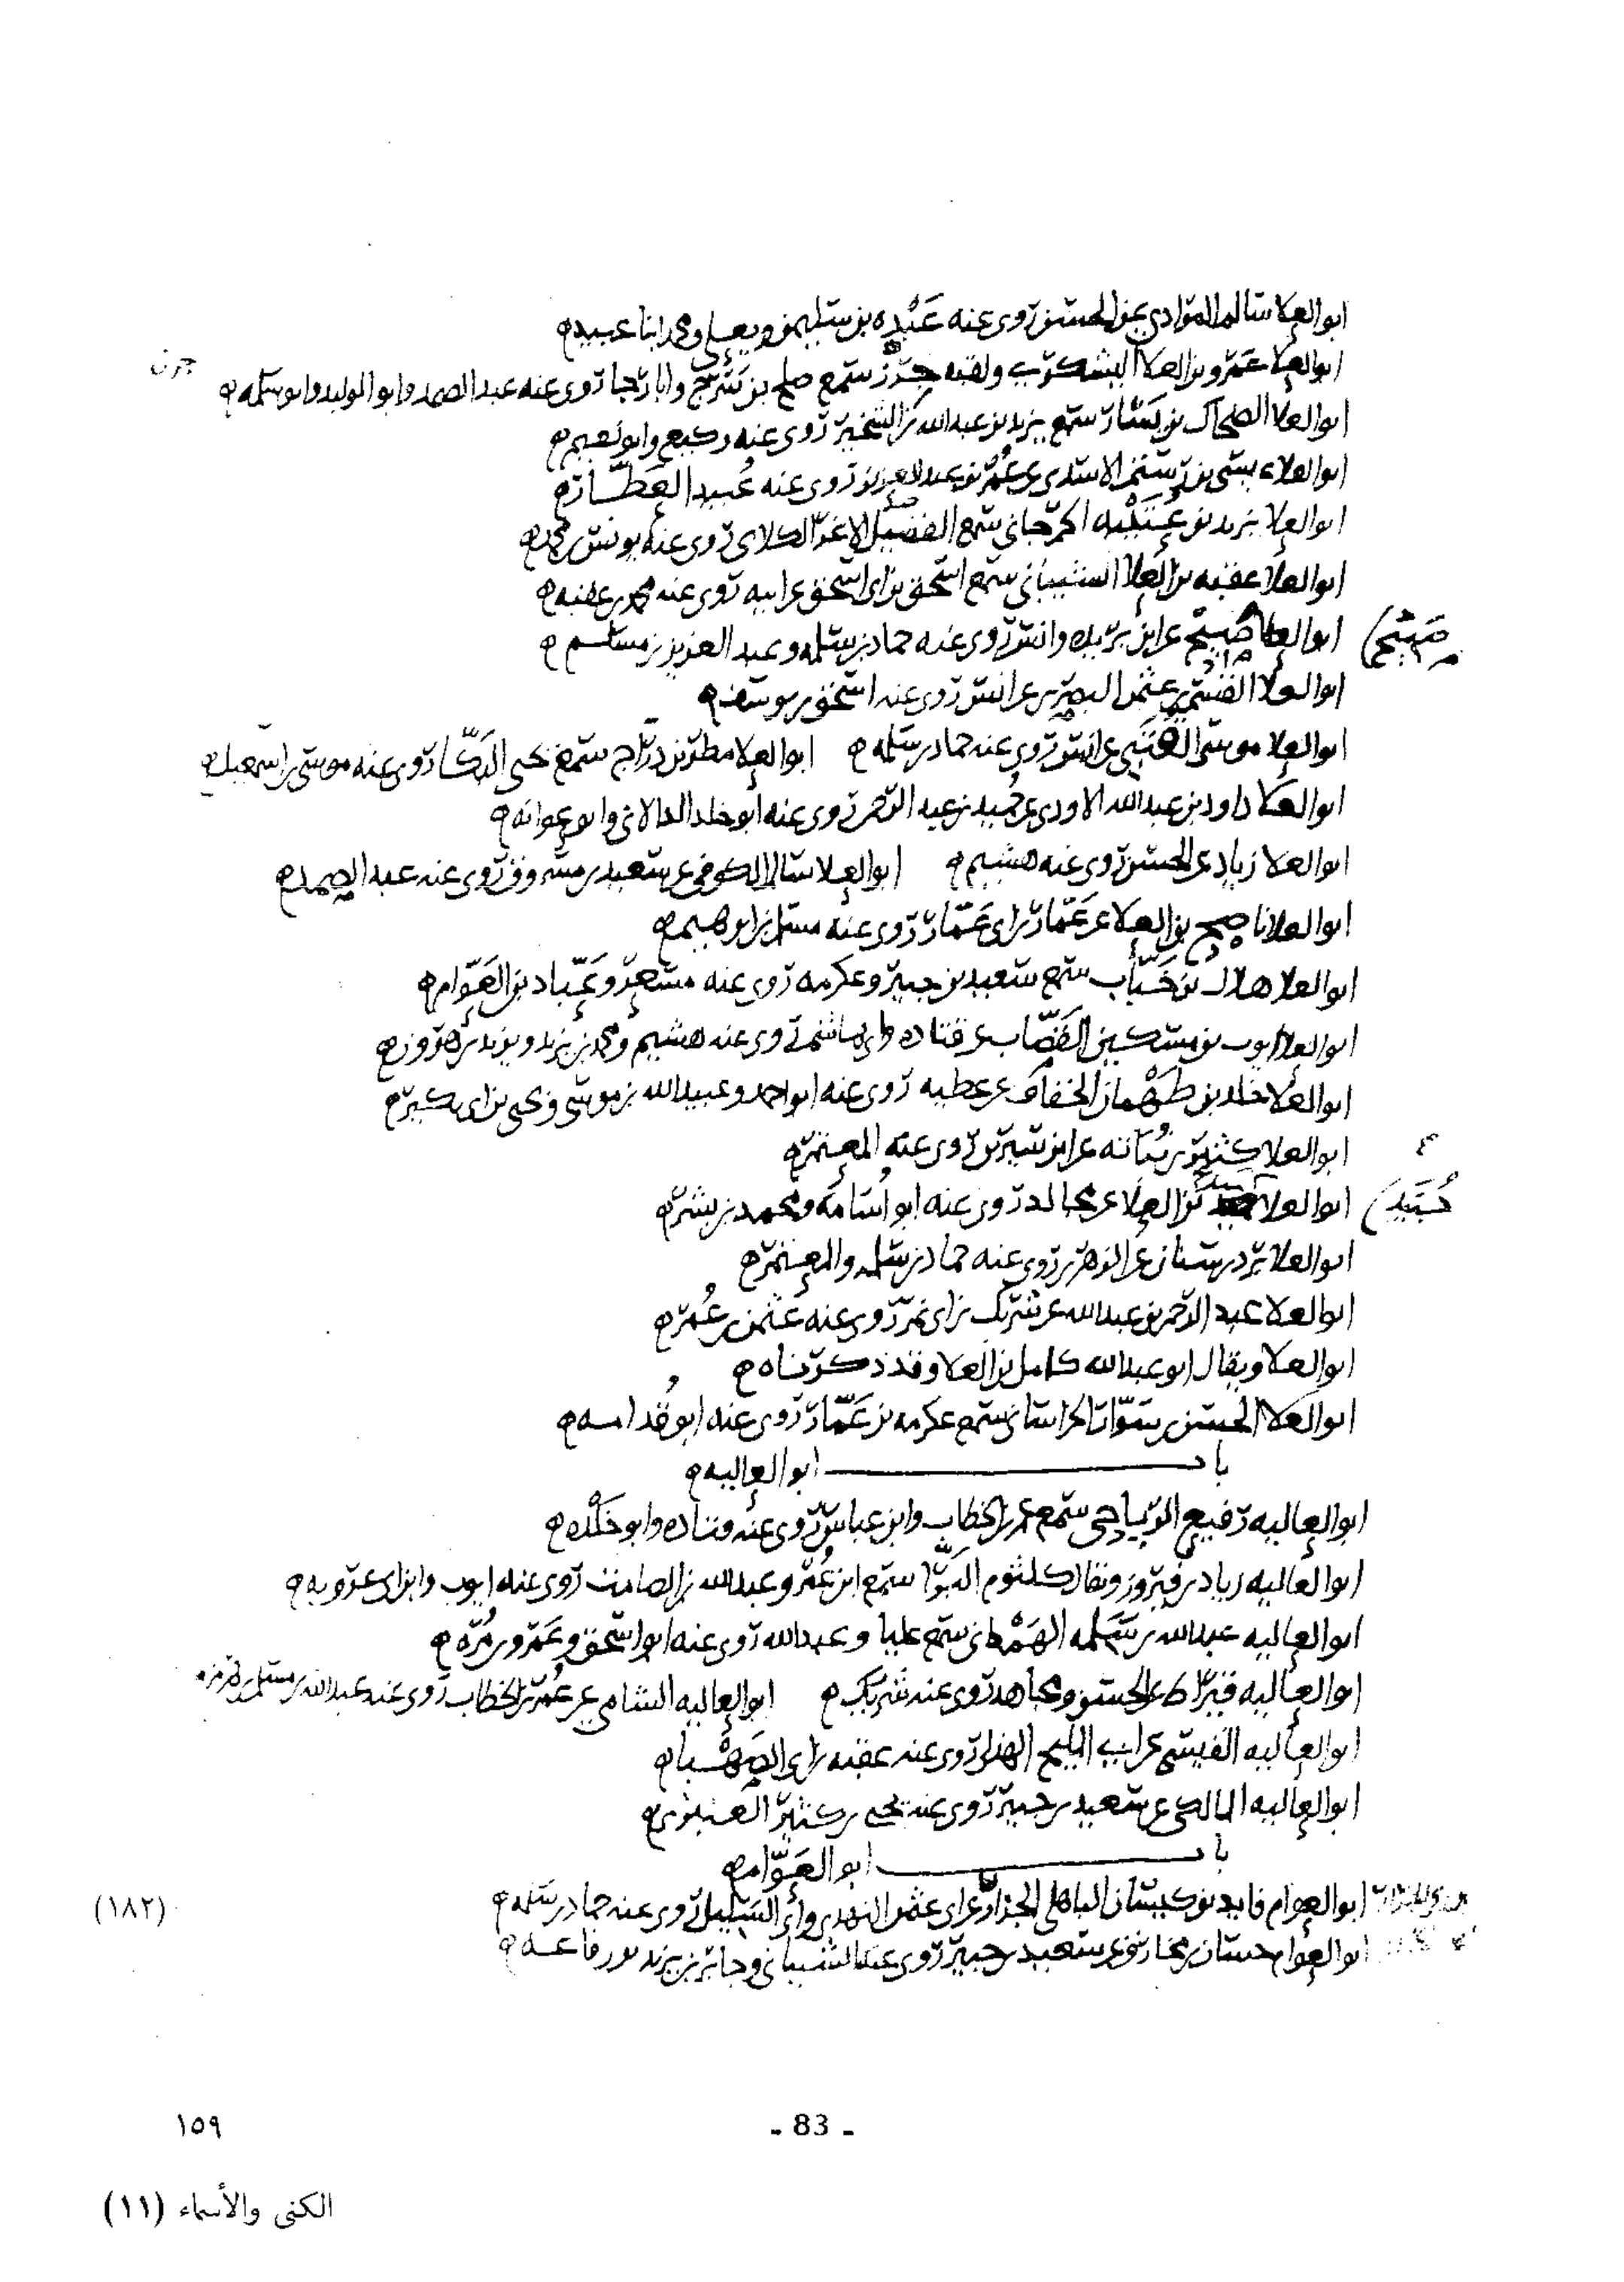 ابو العلا سالم المرادي عن الحسن روى عنه عبده بن سليمن ويعلى ومحمد ابنا عبيد
ابو العلا عمرو بن العلا اليشكري ولقبه جرن سمع صلح بن سرج وابا رجا روى عنه عبد الصمد وابو الوليد وابو سلمه
جرن
ابو العلا الضحاك بن يسار سمع يزيد بن عبد الله بن الشخير روى عنه وكيع وابو نعيم
ابو العلاء بن الاسدي عن عمر بن عبد العزيز روى عنه عبيد العطار
ابو العلا يزيد بن الجرجاني سمع الفضيل الكلاي روى عنه يونس بن محمد
ابو العلا عقبه بن العلا الشيباني سمع اسحق بن ابي اسحق عن ابيه روى عنه محمد بن عقبه
ابو العلا صبيح عن ابن بريده وانس روى عنه حماد بن سلمه وعبد العزيز بن مسلم
صبيح
ابو العلا بن عثمن البصري عن انس روى عنه اسحق بن يوسف
ابو العلا موسى القتبي عن انس روى عنه حماد بن سلمه ابو العلا مطر بن دراج سمع يحيى البكا روى عنه موسى بن اسمعيل
ابو العلا داود بن عبد الله الاودي عن حميد بن عبد الرحمن روى عنه ابو خلد الدالاني وابو عوانه
ابو العلا زياد عن الحسن روى عنه هشيم ابو العلا سالم الكوفي عن سعيد بن مسروق روى عنه عبد الصمد
ابو العلا ناصح بن العلا عن عمار بن ابي عمار روى عنه مسلم بن ابرهيم
ابو العلا هلال بن خباب سمع سعيد بن جبير وعكرمه روى عنه مسعر وعباد بن العوام
ابو العلا ايوب بن مسكين القصاب عن قتاده وابي هاشم روى عنه هشيم ومحمد بن يزيد ويزيد بن هرون
ابو العلا خلد بن طهمان الخفاف عن عطيه روى عنه ابو احمد وعبيد الله بن موسى ويحيى بن ابي بكير
ابو العلا كثير بن نباته عن ابن سيرين روى عنه المعتمر
ابو العلا بن العلا عن مجالد روى عنه ابو اسامه ومحمد بن بشر
ابو العلا برد بن سنان عن الزهري روى عنه حماد بن سلمه والمعتمر
ابو العلا عبد الرحمن بن عبد الله عن شريك بن ابي نمر روى عنه عثمن بن عمر
ابو العلا ويقال ابو عبد الله كامل بن العلا وقد ذكرناه
ابو العلا الحسن بن سوار الخراساني سمع عكرمه بن عمار روى عنه ابو قدامه
باب ابو العاليه
ابو العاليه رفيع الرياحي سمع عمر بن الخطاب وابن عباس روى عنه قتاده وابو خلده
ابو العاليه زياد بن فيروز ويقال كلثوم البرا سمع ابن عمر وعبد الله بن الصامت روى عنه ايوب وابن ابي عروبه
ابو العاليه عبد الله بن سلمه الهمداني سمع عليا وعبد الله روى عنه ابو اسحق وعمرو بن مره
ابو العاليه قيراط عن الحسن ومجاهد روى عنه شريك ابو العاليه الشامي عن عمر بن الخطاب روى عنه عبد الله بن مسلم بن هرمز
ابو العاليه القيسي عن ابي المليح الهذلي روى عنه عقبه بن ابي الصهبا
ابو العاليه المالكي عن سعيد بن جبير روى عنه يحيى بن كثير العنبري
باب ابو العوام
ابو العوام فايد بن كيسان الباهلي الجزار عن ابي عثمن النهدي وابي السليل روى عنه حماد بن سلمه
(١٨٢)
ابو العوام حسان بن مخارق عن سعيد بن جبير روى عنه الشيباني وجابر بن يزيد بن رفاعه
١٥٩
- 83 -
الكنى والأسماء (١١)